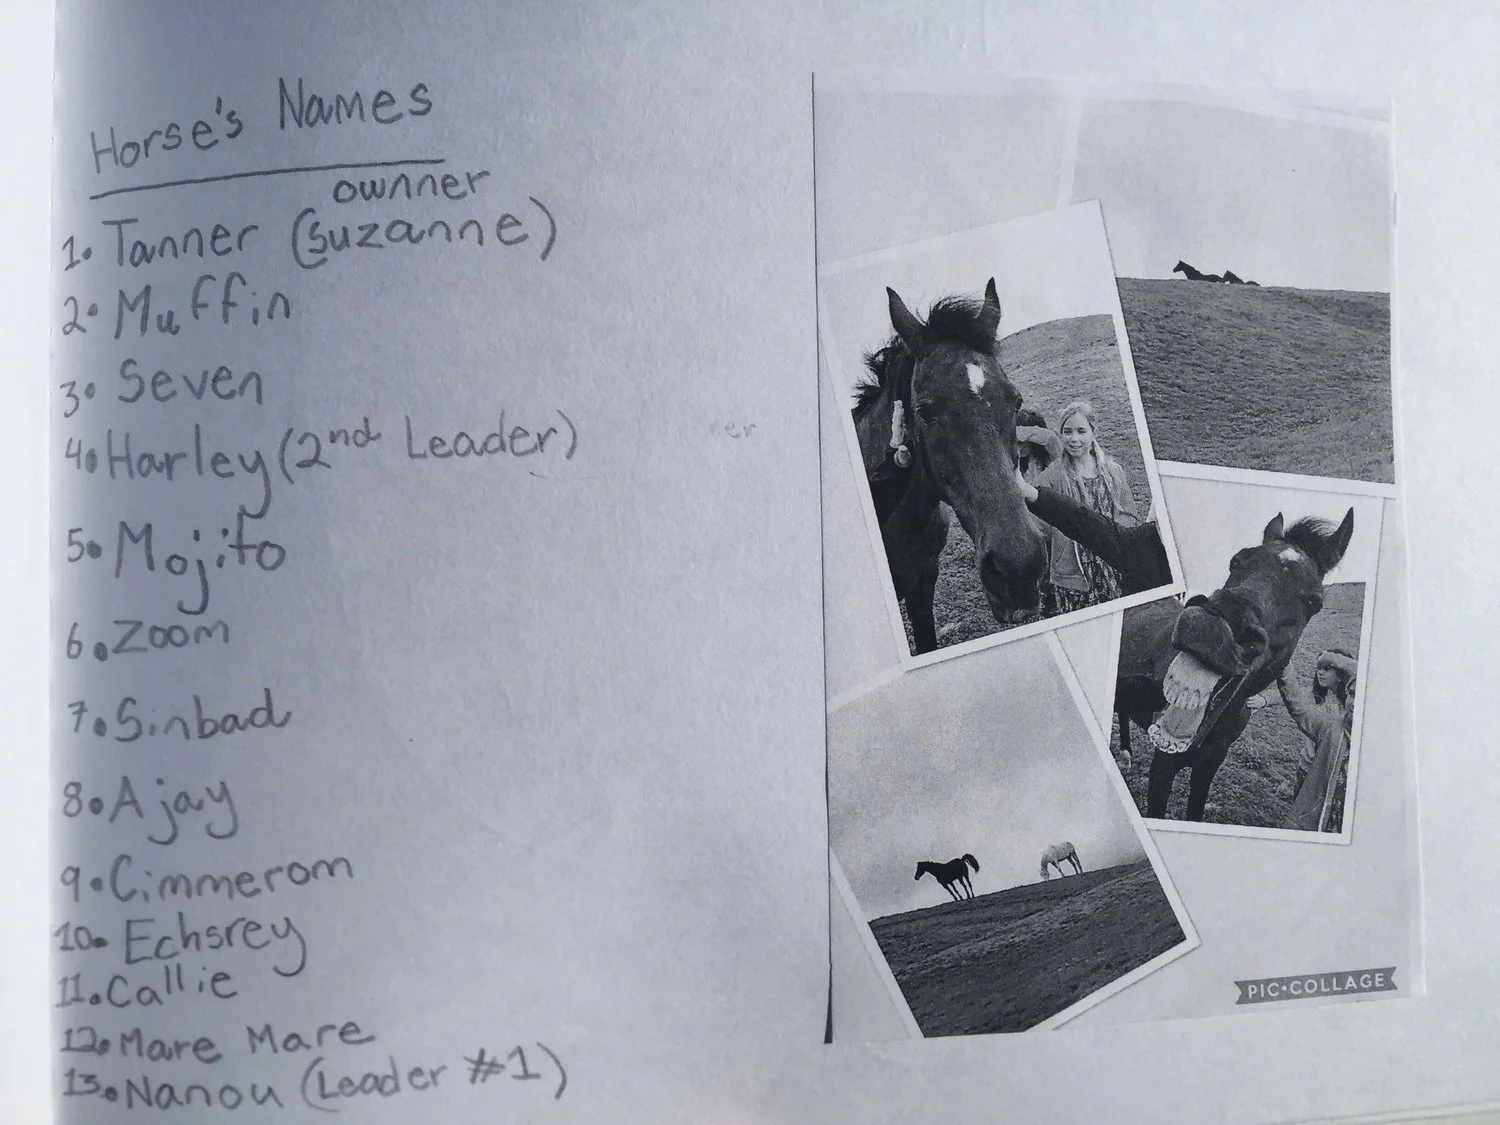 Horse's Names
ownner
1. Tanner (Suzanne)
2. Muffin
3. Seven
4. Harley (2nd Leader)
ner
5. Mojito
6. Zoom
7. Sinbad
8. Ajay
9. Cimmerom
10. Echsrey
11. Callie
12. Mare Mare
13. Nanou (Leader #1)
PIC•COLLAGE